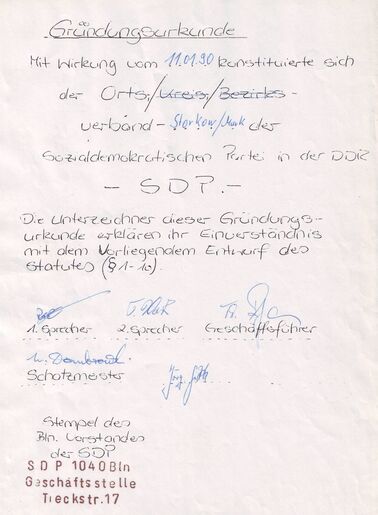 Gründungsurkunde
Mit Wirkung vom 11.01.90 konstituierte sich
der Orts-/Kreis-/Bezirks-
verband - Storkow/Mark der
Sozialdemokratischen Partei in der DDR
- SDP. -
Die Unterzeichner dieser Gründungs-
urkunde erklären ihr Einverständnis
mit dem Vorliegendem Entwurf des
Statutes (§ 1-10).
1. Sprecher 2. Sprecher Geschäftsführer
Schatzmeister
Stempel des
Bln. Vorstandes
der SDP
SDP 1040 Bln
Geschäftsstelle
Tieckstr. 17